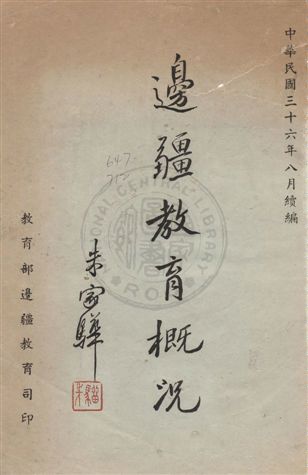 中華民國三十六年八月續編
邊疆教育概況
朱家驊
教育部邊疆教育司印
647
NATIONAL CENTRAL LIBRARY